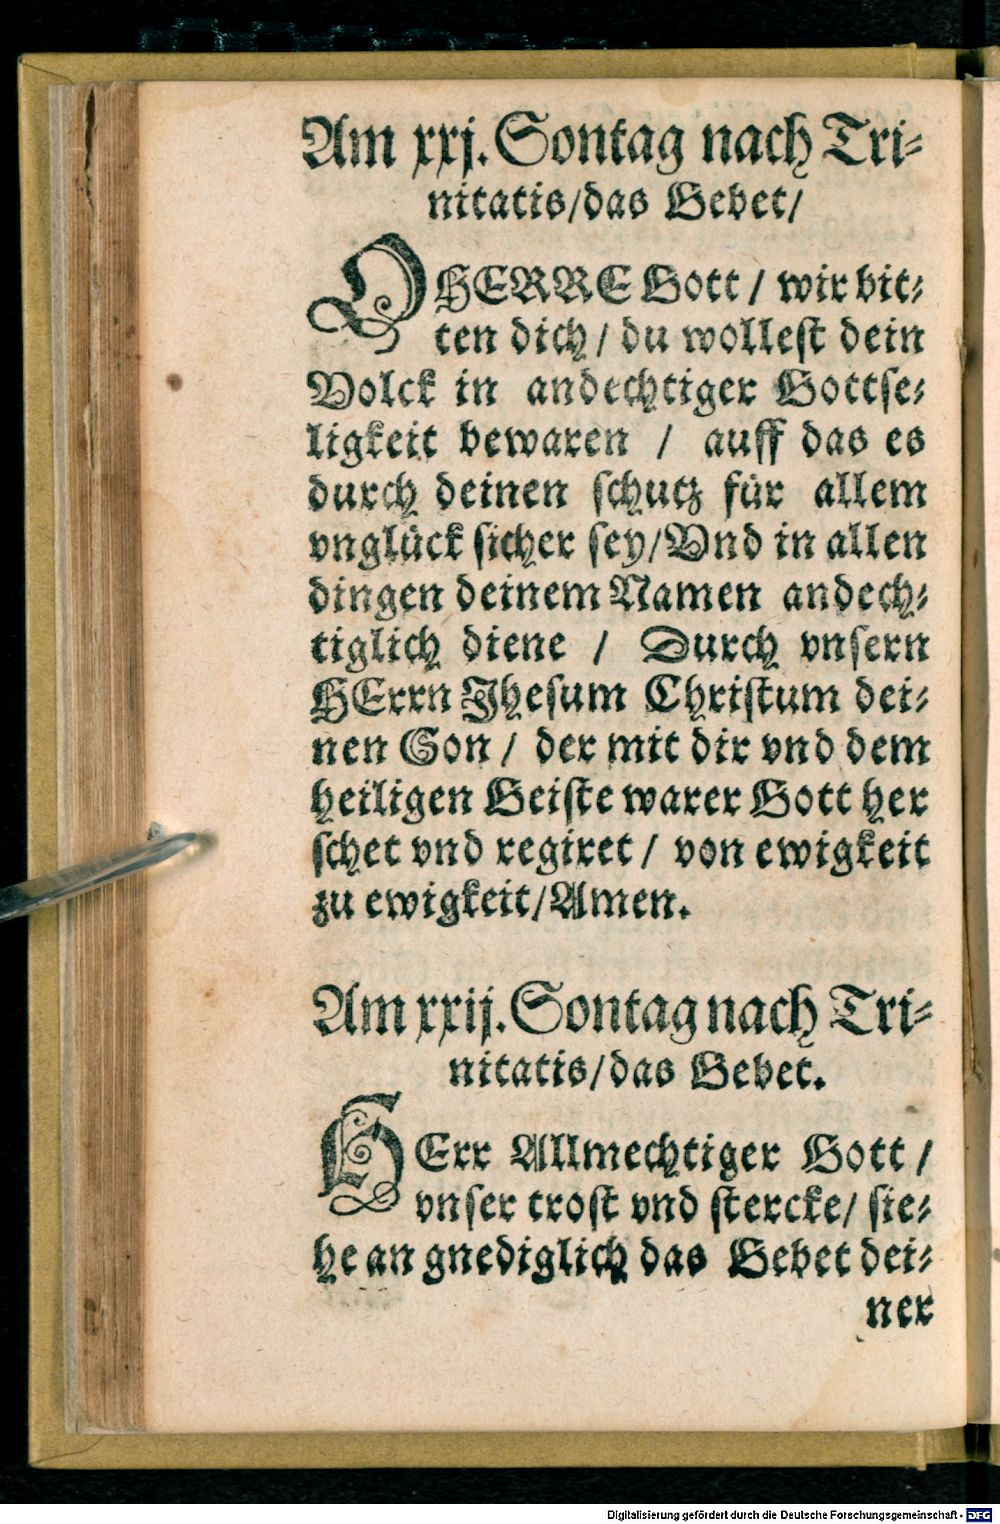 Am xxj. Sontag nach Tri-
nitatis/das Gebet/
O HERRE Gott / wir bit-
ten dich / du wollest dein
Volck in andechtiger Gottse-
ligkeit bewaren / auff das es
durch deinen schutz für allem
vnglück sicher sey/Vnd in allen
dingen deinem Namen andech-
tiglich diene / Durch vnsern
HErrn Jhesum Christum dei-
nen Son / der mit dir vnd dem
heiligen Geiste warer Gott her
schet vnd regiret / von ewigkeit
zu ewigkeit/Amen.
Am xxij. Sontag nach Tri-
nitatis/das Gebet.
HErr Allmechtiger Gott /
vnser trost vnd stercke/ sie-
he an gnediglich das Gebet dei-
ner
Digitalisierung gefördert durch die Deutsche Forschungsgemeinschaft - DFG